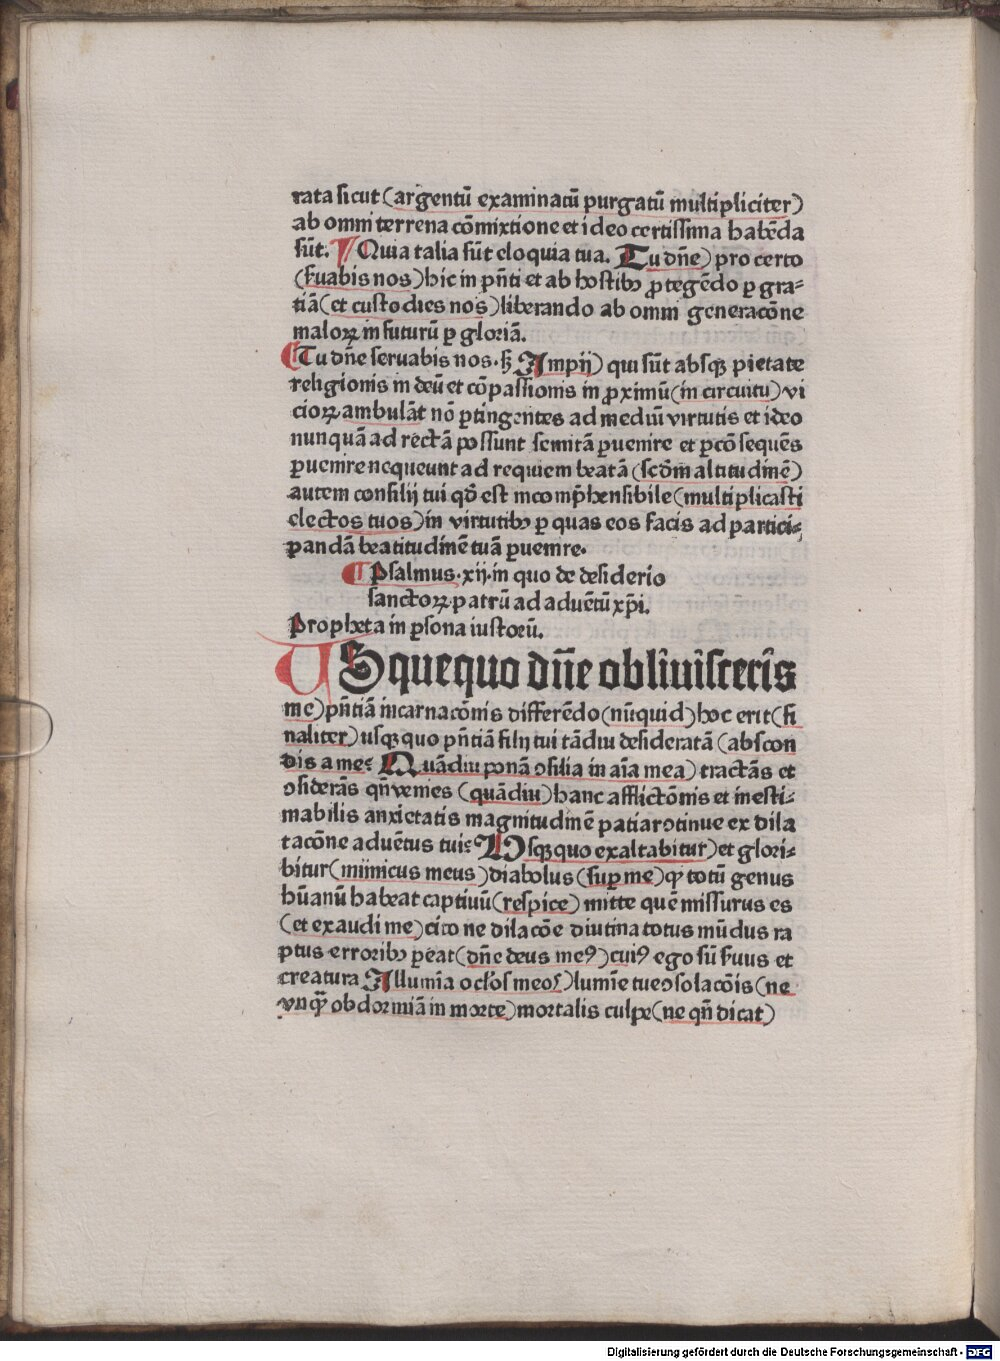 rata sicut (argentū examinatū purgatū multipliciter)
ab omni terrena cōmixtione et ideo certissima habēda
sūt. Quia talia sūt eloquia tua. Tu dn̄e) pro certo
(ẜuabis nos) hic in pn̄ti et ab hostibꝫ ꝓtegēdo ꝑ gra⸗
tiā (et custodies nos) liberando ab omni generacōne
maloꝝ in futurū ꝑ gloriā.
Tu dn̄e seruabis nos. ẜꝫ Impij) qui sūt absqꝫ pietate
religionis in deū et cōpassionis in ꝓximū (in circuitu) vi
cioꝝ ambulāt nō ꝑtingentes ad mediū virtutis et ideo
nunquā ad rectā possunt semitā ꝑuenire et ꝑ cōsequēs
ꝑuenire nequeunt ad requiem beatā (scd̄m altitudinē)
autem consilij tui qd̄ est incomp̄hensibile (multiplicasti
electos tuos) in virtutibꝫ ꝑ quas eos facis ad partici⸗
pandā beatitudinē tuā ꝑuenire.
Psalmus. xij. in quo de desiderio
sanctoꝝ patrū ad aduētū xp̄i.
Propheta in ꝑsona iustorū.
USquequo dn̄e obliuisceris
me) pn̄tiā incarnacōnis differēdo (nūquid) hoc erit (fi
naliter) usqꝫ quo pn̄tiā filij tui tādiu desideratā (abscon
dis a me? Quādiu ponā ꝯsilia in aīa mea) tractās et
ꝯsiderās qn̄ venies (quādiu) hanc afflictōnis et inesti⸗
mabilis anxietatis magnitudinē patiar ꝯtinue ex dila
tacōne aduētus tui? Usqꝫ quo exaltabitur) et glori⸗
bitur (inimicus meus) diabolus (suꝑ me) ꝙ totū genus
hūanū habeat captiuū (respice) mitte quē missurus es
(et exaudi me) cito ne dilacōe diutina totus mūdus ra
ptus erroribꝫ ꝑeat (dn̄e deus meꝰ) cuiꝰ ego sū ẜuus et
creatura Illumīa ocl̄os meos) lumīe tue ꝯsolacōis (ne
vnqꝫ̄ obdormiā in morte) mortalis culpe (ne qn̄ dicat)
Digitalisierung gefördert durch die Deutsche Forschungsgemeinschaft - DFG